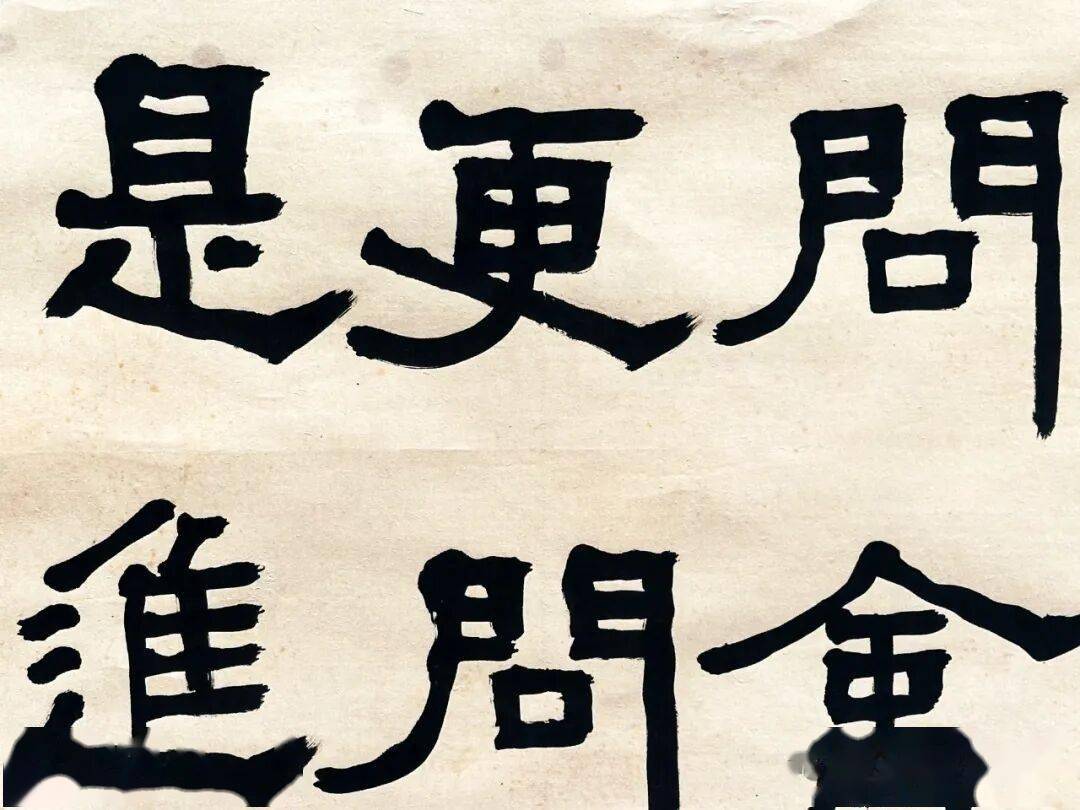 問更是
會問進